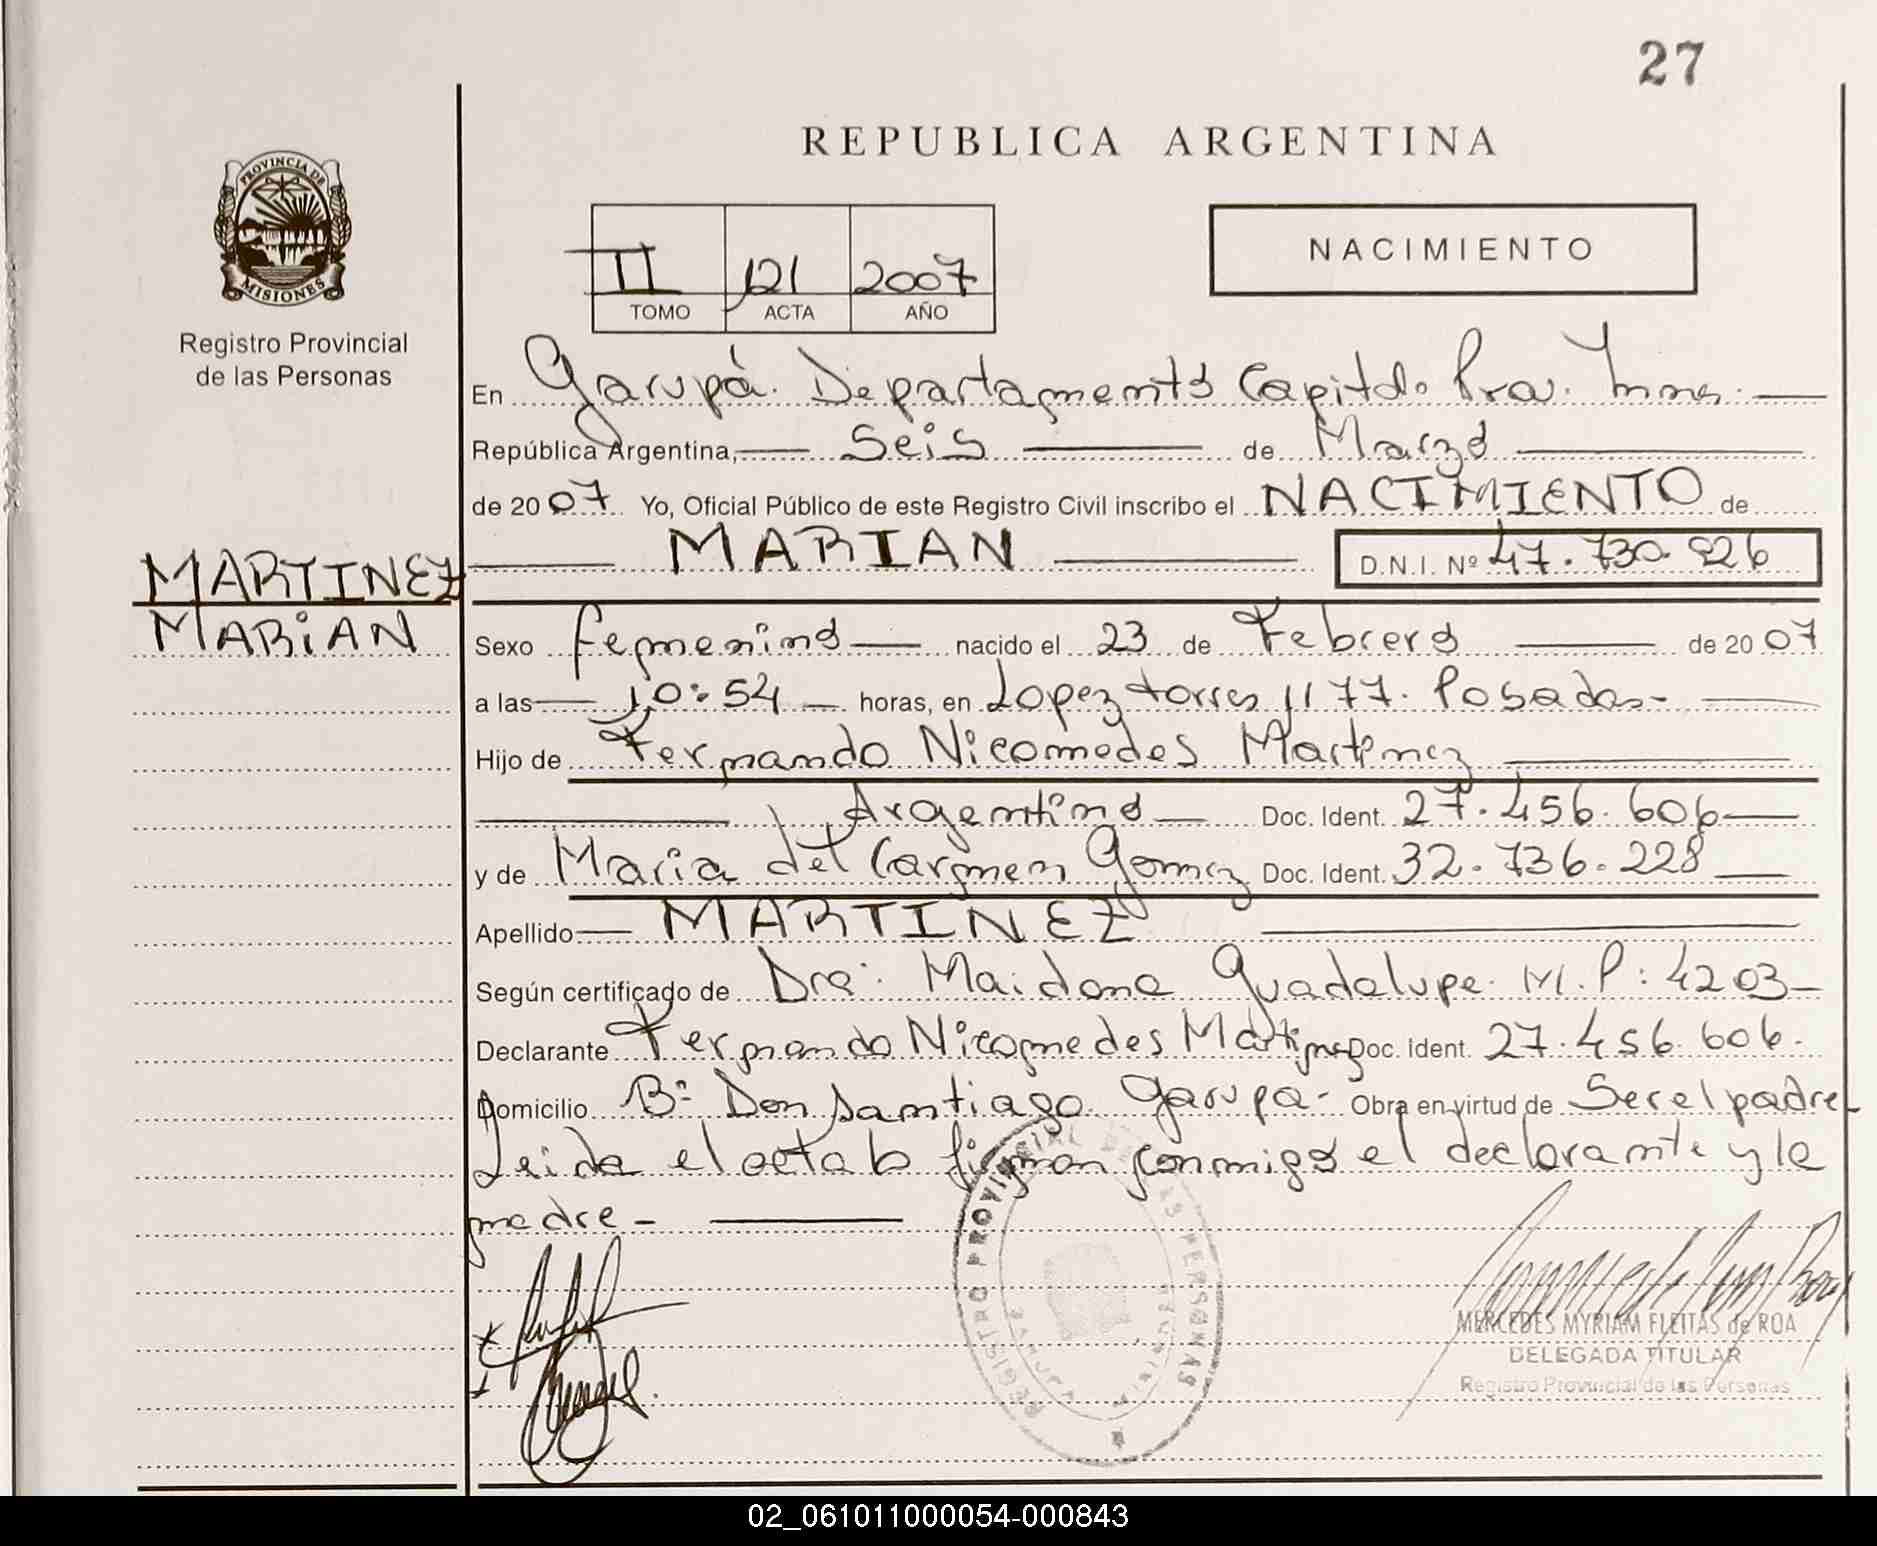 27
REPUBLICA ARGENTINA
PROVINCIA DE
MISIONES
Registro Provincial
de las Personas
II 121 2007
TOMO ACTA AÑO
NACIMIENTO
En Garupá. Departamento Capital. Pcia. Mnes.
República Argentina, Seis de Marzo
de 2007 Yo, Oficial Público de este Registro Civil inscribo el NACIMIENTO de
MARIAN D.N.I. Nº 47.730.926
MARTINEZ
MARiAN
Sexo femenino nacido el 23 de Febrero de 2007
a las 10:54 horas, en Lopez torres 1177. Posadas-
Hijo de Fernando Nicomedes Martinez
Argentino Doc. Ident. 27.456.606
y de Maria del Carmen Gomez Doc. Ident. 32.736.228
Apellido MARTINEZ
Según certificado de Dra: Maidana Guadalupe. M.P: 4203-
Declarante Fernando Nicomedes Martinez Doc. Ident. 27.456.606.
Domicilio Bº Don Santiago Garupa- Obra en virtud de Ser el padre-
Leida el acta la firman conmigo el declarante y la
madre-
REGISTRO PROVINCIAL DE LAS PERSONAS
MERCEDES MYRIAM FLEITAS de ROA
DELEGADA TITULAR
Registro Provincial de las Personas
02_061011000054-000843